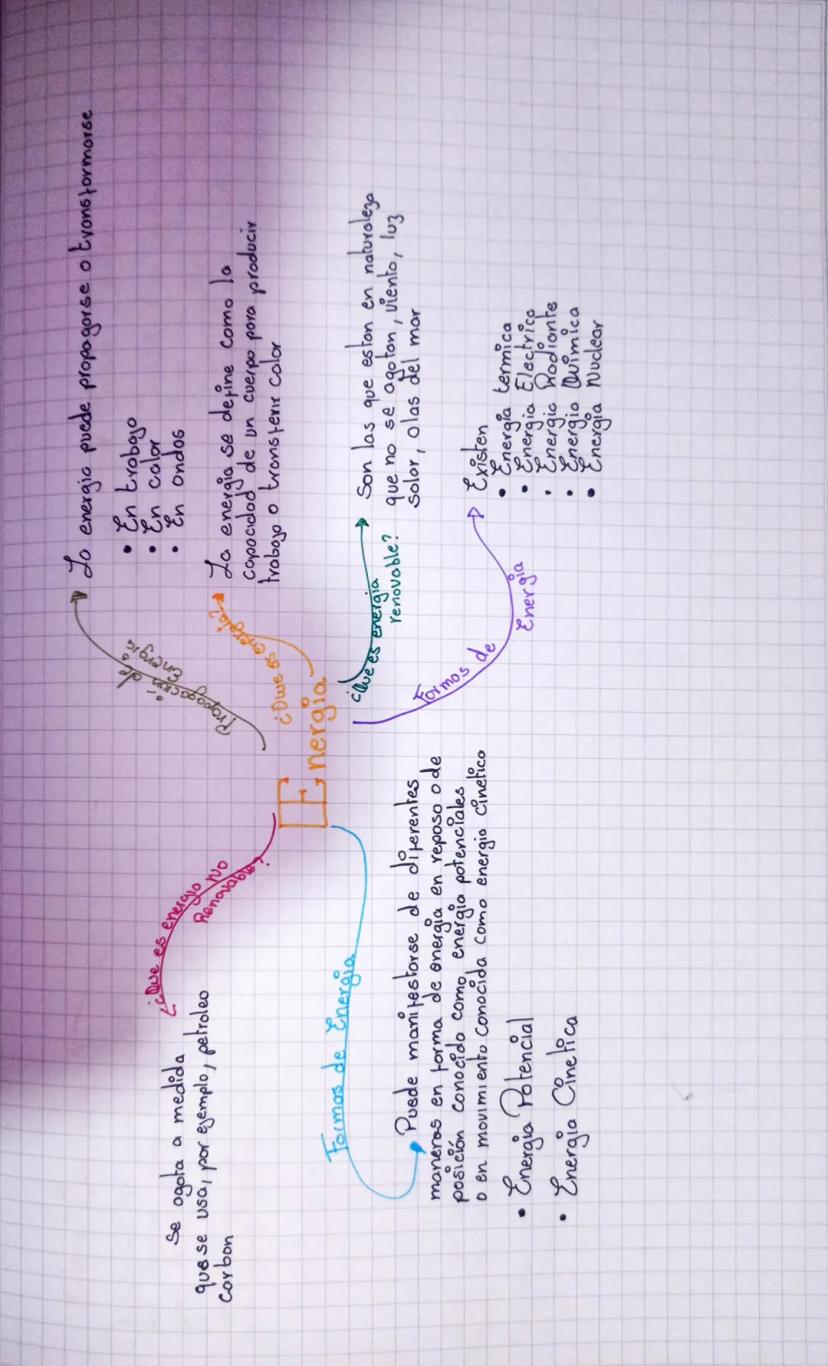 Energía
¿Que es energía?
La energia se define como la
capacidad de un cuerpo para producir
trabajo o transferir calor
Propagación de
Energia
La energia puede propagarse o transformarse
• En trabajo
• En calor
• En ondas
¿Que es energia
renovable?
Son las que estan en naturaleza
que no se agotan, viento, luz
solar, olas del mar
Formas de
Energía
Existen
• Energía termica
• Energia Electrica
• Energia Radiante
• Energia Química
• Energía Nuclear
¿Que es energia No
Renovable?
Se agota a medida
que se usa, por ejemplo, petroleo
Carbon
Formas de Energía
Puede manifestarse de diferentes
maneras en forma de energia en reposo o de
posición conocida como, energia potenciales
o en movimiento conocida como energia cinetica
• Energía Potencial
• Energía Cinetica